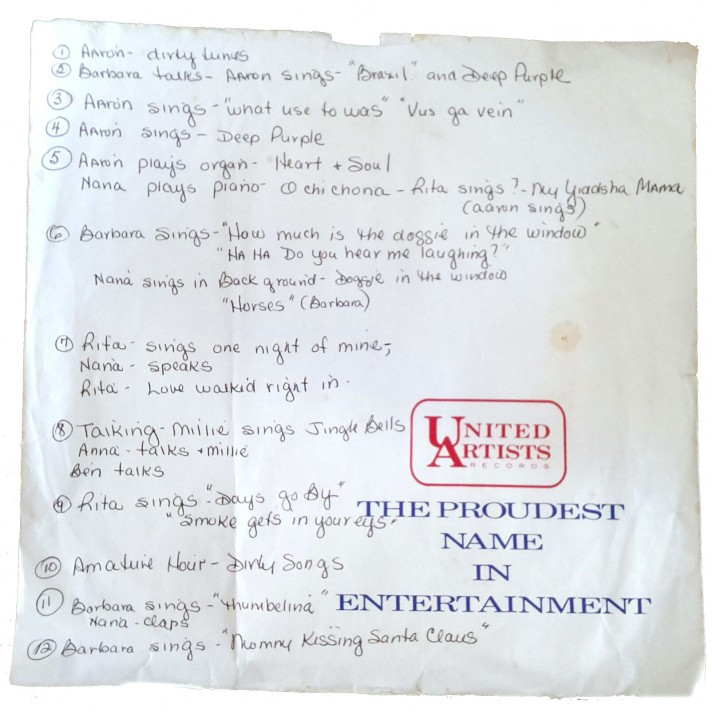 ① Aaron- dirty tunes
② Barbara talks- Aaron sings- "Brazil" and Deep Purple
③ Aaron sings - "what use to was" "Vus ga vein"
④ Aaron sings - Deep Purple
⑤ Aaron plays organ- Heart + Soul
Nana plays piano- O chi chona - Rita sings? - My Yiddsha Mama
(aaron sings)
⑥ Barbara Sings - "How much is the doggie in the window"
"HA HA Do you hear me laughing?"
Nana sings in Back ground - Doggie in the window
"Horses" (Barbara)
⑦ Rita - sings one night of mine;
Nana - speaks
Rita - Love walkid right in -
⑧ Talking - Millie sings Jingle Bells
Anna - talks + millie
Ben talks
⑨ Rita sings "Days go By"
"Smoke gets in your eys"
⑩ Amature Hour - Dirty Songs
⑪ Barbara sings - "thumbelina"
Nana - claps
⑫ Barbara sings - "Mommy Kissing Santa Claus"
UNITED
ARTISTS
RECORDS
THE PROUDEST
NAME
IN
ENTERTAINMENT